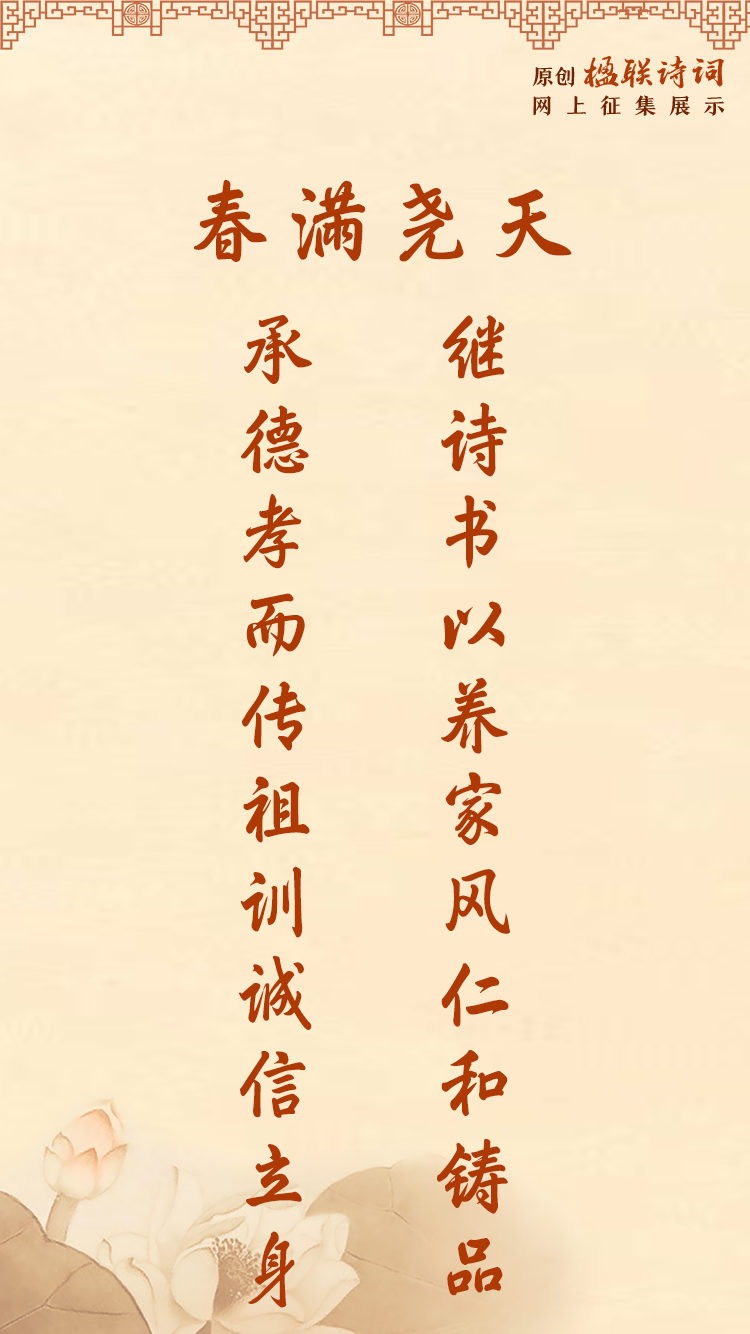 原创 楹联诗词
网上征集展示
春满尧天
继诗书以养家风仁和铸品
承德孝而传祖训诚信立身